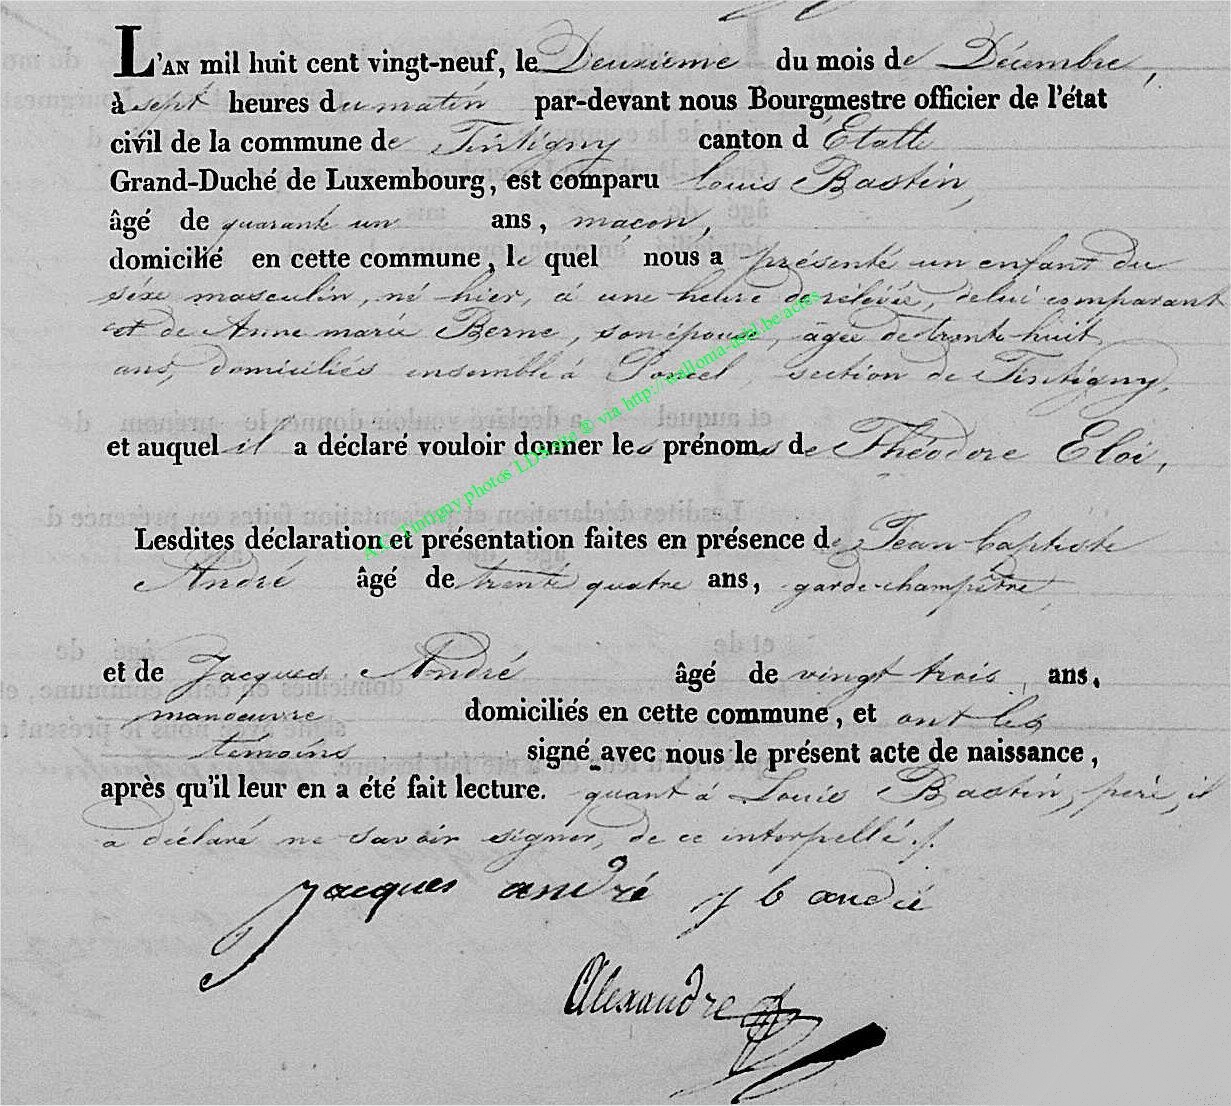 L'AN mil huit cent vingt-neuf, le Deuxième du mois de Décembre,
à sept heures du matin par-devant nous Bourgmestre officier de l'état
civil de la commune de Tintigny canton d'Etalle
Grand-Duché de Luxembourg, est comparu Louis Bastin,
âgé de quarante un ans, macon,
domicilié en cette commune, le quel nous a présenté un enfant du
séxe masculin, né hier, à une heure de rélévée, de lui comparant
et de Anne marie Berne, son épouse, âgée de trente huit
ans, domiciliés ensemble à Poncel, section de Tintigny,
et auquel il a déclaré vouloir donner les prénoms de Théodore Eloi,
Lesdites déclaration et présentation faites en présence de Jean baptiste
André âgé de trente quatre ans, garde-champêtre
et de Jacques André âgé de vingt trois ans,
manoeuvre domiciliés en cette commune, et ont les
témoins signé avec nous le présent acte de naissance,
après qu'il leur en a été fait lecture. quant à Louis Bastin, père, il
a déclaré ne savoir signer, de ce interpellé./.
jacques andré j b andré
Alexandre
A.C. Tintigny photos LDS site ® via http://wallonia-asbl.be/actes